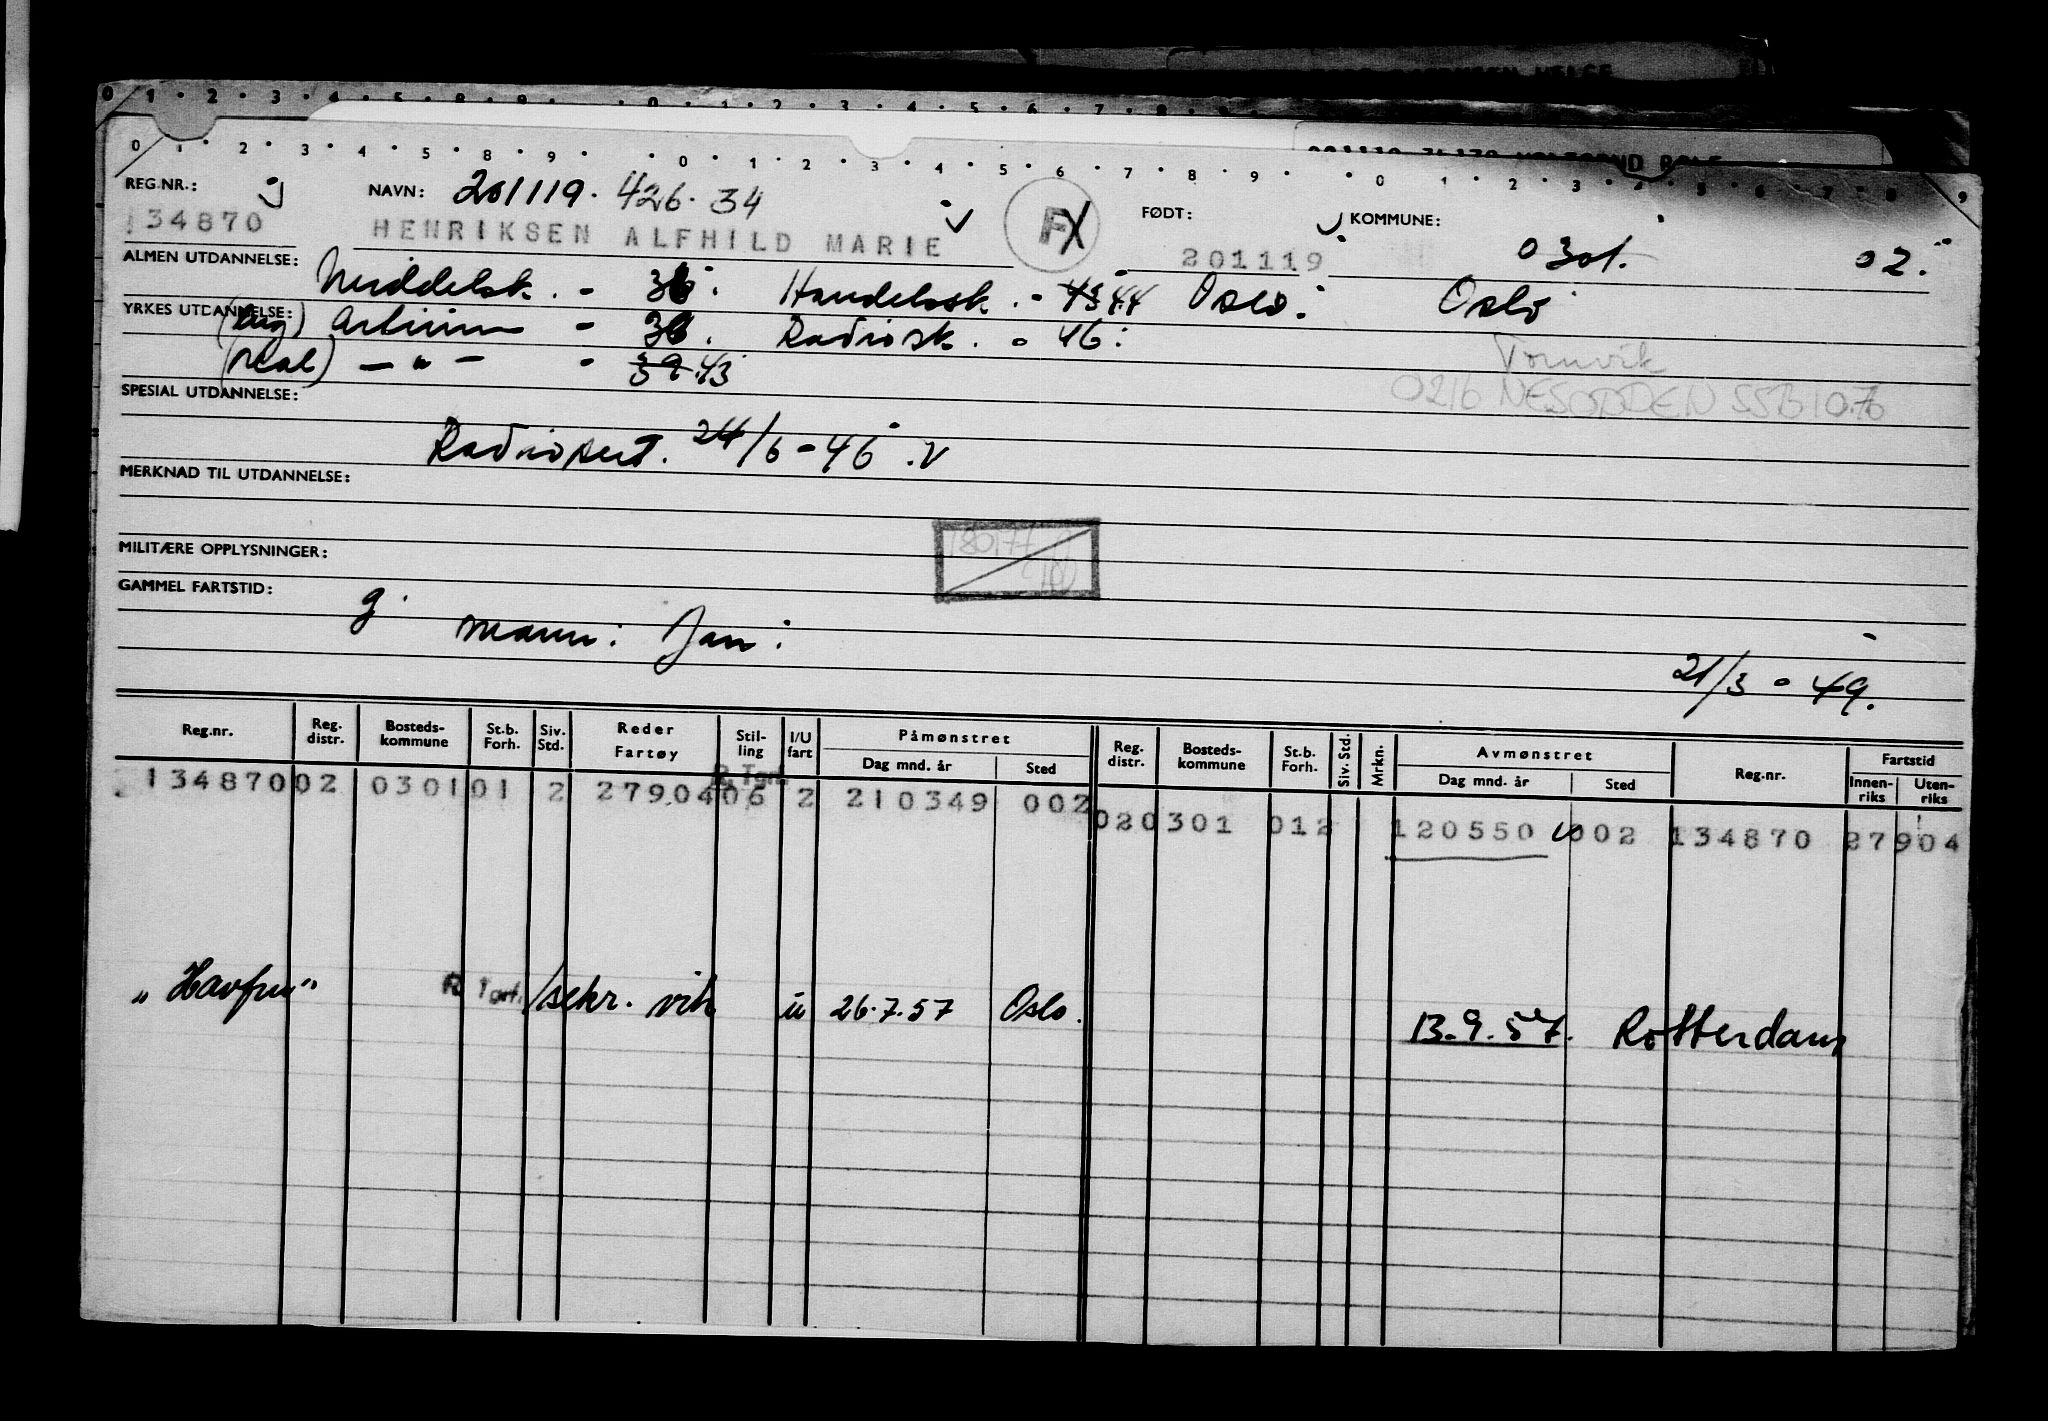 0 1 2 3 4 5 8 9 0 1 2 3 4 5 6 7 8 9
0 1 2 3 4 5 8 9 0 1 2 3 4 5 6 7 8 9 0 1 2 3 7 8 9
REG.NR.: NAVN: 201119. 426. 34 FØDT: KOMMUNE:
134870 HENRIKSEN ALFHILD MARIE F 201119 0301. 02.
ALMEN UTDANNELSE: Middelsk. - 36. Handelssk. - 43 44 Oslo. Oslo
YRKES UTDANNELSE: (eng) Artium - 36. Radiosk. - 46.
(real) — " — - 39.43 Tornvik
0216 NESODDEN SSB 10.76
SPESIAL UTDANNELSE:
Radiosert. 24/6 - 46 .v
MERKNAD TIL UTDANNELSE:
180177
MILITÆRE OPPLYSNINGER:
GAMMEL FARTSTID: g.
mann: Jan. 21/3 - 49.
Reg.nr. Reg. distr. Bosteds-kommune St.b. Forh. Siv. Std. Reder Fartøy Stil-ling I/U fart Påmønstret Dag mnd. år Sted Reg. distr. Bosteds-kommune St.b. Forh. Siv. Std. Mrkn. Avmønstret Dag mnd. år Sted Reg.nr. Fartstid Innen-riks Uten-riks
R. Tgrf.
134870 02 0301 01 2 27904 06 2 210349 002 02 0301 012 120550 002 134870 27904
"Havfru" R Tgrf. /sekr. vik u 26.7.57 Oslo. 13.9.57. Rotterdam